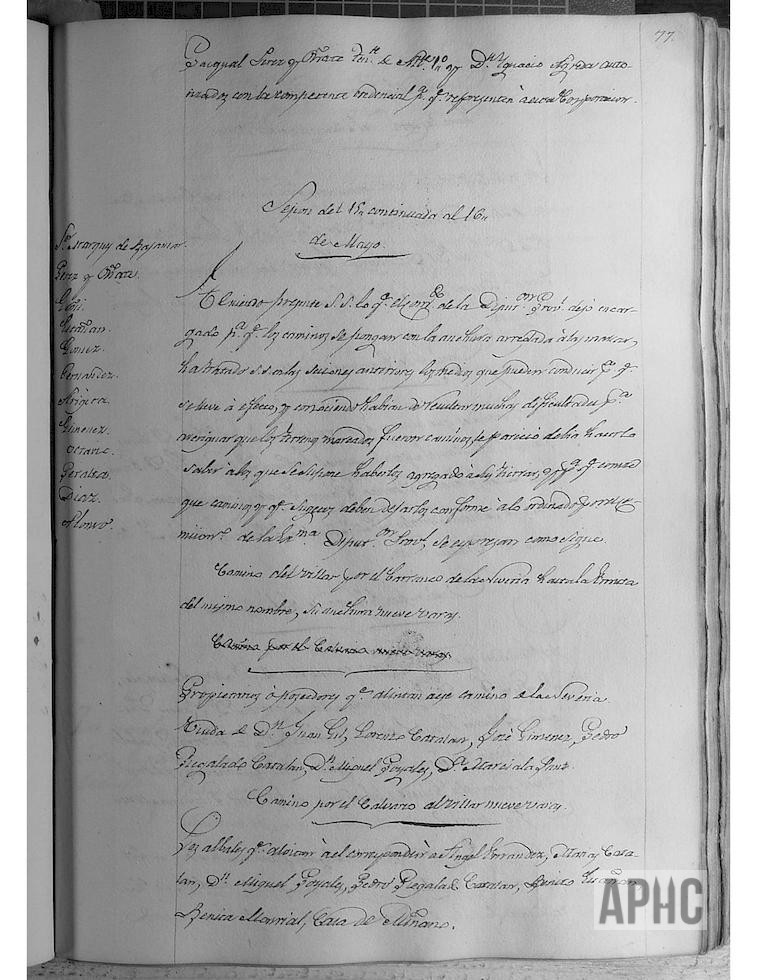 77.
Pasqual Perez y Oñate Ten.te de Alc.e 1.o y D.n Ygnacio Agreda auto-
rizados con la competente credencial p.a q.e representen à esta Corporacion.
Sesion del 15 continuada al 16
de Mayo.
S.r Marques de
Perez y Oñate.
Gomez.
Fernandez.
Ximenez.
Peralta.
Diaz.
Alonso
presente S. S. lo q.e de la Diput.on Prov.l dejó encar-
gado p.a q.e los caminos se pongan con la anchura arreglada à las marcas,
ha tratado S. S. en las sesiones anteriores los medios que pueden conducir p.a q.e
se lleve à efecto, y conociendo habian de resultar muchas dificultades p.a
averiguar que los terrenos marcados fueron caminos le pareció debia hacerlo
saber à los que se supone haberlos agregado à sus tierras, y p.a q.e conste
que caminos y q.e sugetos deben dejarlos conforme à lo ordenado
de la Ex.ma Diput.on Prov.l se expresan como sigue.
Camino del Villar por el barranco de la Neveria hasta la
del mismo nombre, su anchura nueve varas.
Camino por el Calvario nueve varas.
Propietarios ò poseedores q.e alindan à este camino de la Neveria
Viuda de D.n Juan Gil, Lorenzo Catalan, José Gimenez, Pedro
Regalado Catalan, D.n Miguel Gonzales, D.n
Camino por el Calvario al Villar nueve varas.
Los q.e corresponden à Angel Hernandez, Cata-
lan, D.n Miguel Gonzales, Pedro Regalado Catalan, Benito
Benita Monrial, Casa de
APHC